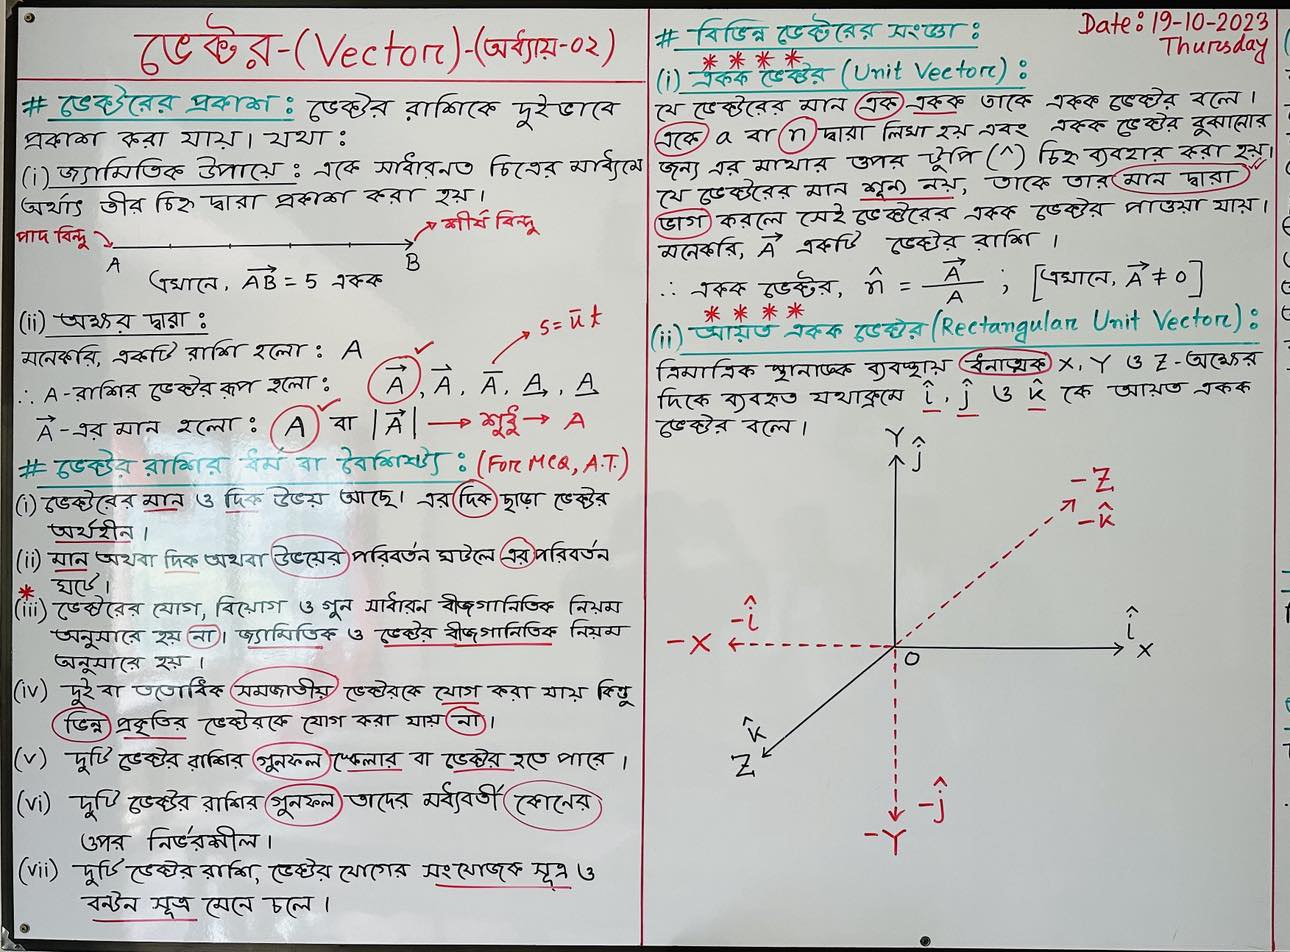 ভেক্টর-(Vector)-(অধ্যায়-০২)
# ভেক্টরের প্রকাশ : ভেক্টর রাশিকে দুইভাবে
প্রকাশ করা যায়। যথা :
(i) জ্যামিতিক উপায়ে : একে সাধারনত চিত্রের মাধ্যমে
অর্থাৎ তীর চিহ্ন দ্বারা প্রকাশ করা হয়।
পাদ বিন্দু
শীর্ষ বিন্দু
A B
এখানে, \vec{AB} = 5 একক
(ii) অক্ষর দ্বারা :
s = ū t
মনেকরি, একটি রাশি হলো : A
∴ A-রাশির ভেক্টর রূপ হলো : \vec{A}, \vec{A}, Ā, A̲, A̲
\vec{A}-এর মান হলো : A বা |\vec{A}| → শুধু → A
# ভেক্টর রাশির ধর্ম বা বৈশিষ্ট্য : (For MCQ, A.T.)
(i) ভেক্টরের মান ও দিক উভয় আছে। এর দিক ছাড়া ভেক্টর
অর্থহীন।
(ii) মান অথবা দিক অথবা উভয়ের পরিবর্তন ঘটলে এর পরিবর্তন
ঘটে।
*
(iii) ভেক্টরের যোগ, বিয়োগ ও গুন সাধারন বীজগানিতিক নিয়ম
অনুসারে হয় না। জ্যামিতিক ও ভেক্টর বীজগানিতিক নিয়ম
অনুসারে হয়।
(iv) দুই বা ততোধিক সমজাতীয় ভেক্টরকে যোগ করা যায় কিন্তু
ভিন্ন প্রকৃতির ভেক্টরকে যোগ করা যায় না।
(v) দুটি ভেক্টর রাশির গুনফল স্কেলার বা ভেক্টর হতে পারে।
(vi) দুটি ভেক্টর রাশির গুনফল তাদের মধ্যবর্তী কোনের
ওপর নির্ভরশীল।
(vii) দুটি ভেক্টর রাশি, ভেক্টর যোগের সংযোজক সূত্র ও
বন্টন সূত্র মেনে চলে।
Date: 19-10-2023
Thursday
# বিভিন্ন ভেক্টরের সংজ্ঞা :
* * * *
(i) একক ভেক্টর (Unit Vector) :
যে ভেক্টরের মান এক একক তাকে একক ভেক্টর বলে।
একে a বা n দ্বারা লিখা হয় এবং একক ভেক্টর বুঝানোর
জন্য এর মাথার ওপর টুপি (^) চিহ্ন ব্যবহার করা হয়।
যে ভেক্টরের মান শূন্য নয়, তাকে তার মান দ্বারা
ভাগ করলে সেই ভেক্টরের একক ভেক্টর পাওয়া যায়।
মনেকরি, \vec{A} একটি ভেক্টর রাশি।
∴ একক ভেক্টর, n̂ = \vec{A}/A ; [এখানে, \vec{A} ≠ 0]
* * * *
(ii) আয়ত একক ভেক্টর (Rectangular Unit Vector) :
ত্রিমাত্রিক স্থানাঙ্ক ব্যবস্থায় ধনাত্মক X, Y ও Z-অক্ষের
দিকে ব্যবহৃত যথাক্রমে î, ĵ ও k̂ কে আয়ত একক
ভেক্টর বলে।
Y ĵ
-Z
-k̂
-î
î
-X
O
X
k̂
Z
-ĵ
-Y